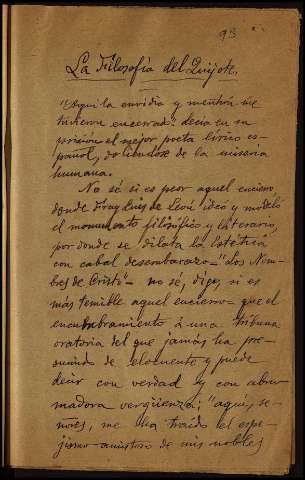 93
La Filosofía del Quijote.
"Aquí la envidia y mentira me
tuvieron encerrado" decía en su
prisión el mejor poeta lírico es-
pañol, doliéndose de la miseria
humana.
No sé si es peor aquel encierro,
donde Fray Luis de León ideó y modeló
el monumento filosófico y literario,
por donde se dilata la Estética
con cabal desembarazo - "Los Nom-
bres de Cristo" - no sé, digo, si es
más temible aquel encierro que el
encumbramiento á una tribuna
oratoria del que jamás ha pre-
sumido de elocuente y puede
decir con verdad y con abru-
madora vergüenza: "aquí, se-
ñores, me ha traído el espe-
jismo amistoso de mis nobles